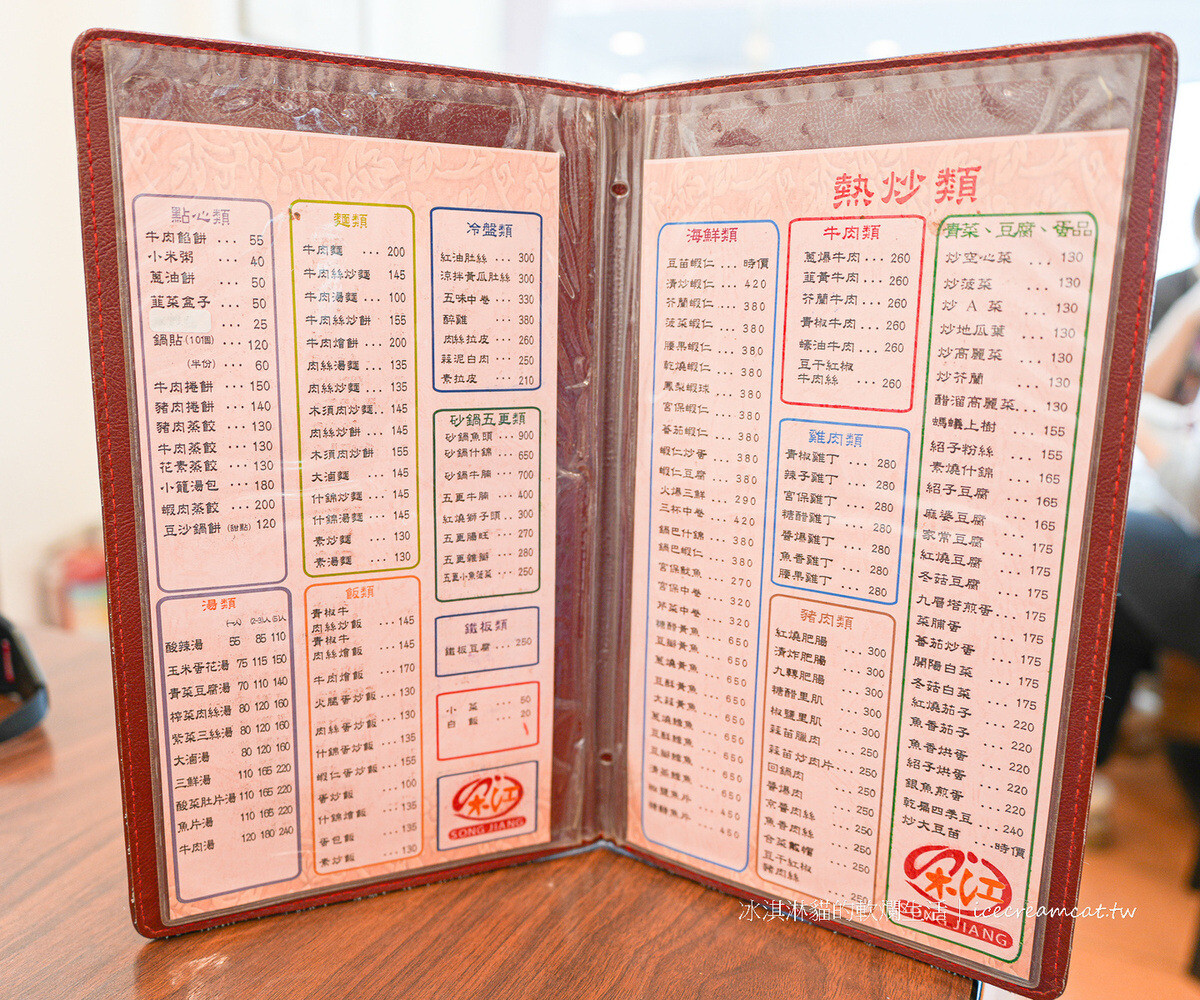 點心類
牛肉餡餅 ... 55
小米粥 ... 40
蔥油餅 ... 50
韮菜盒子 ... 50
... 25
鍋貼(10個) ... 120
(半份) ... 60
牛肉捲餅 ... 150
豬肉捲餅 ... 140
豬肉蒸餃 ... 130
牛肉蒸餃 ... 130
花素蒸餃 ... 130
小籠湯包 ... 180
蝦肉蒸餃 ... 200
豆沙鍋餅(甜點) 120
湯類
(一人) (2-3人) (5人)
酸辣湯 55 85 110
玉米蛋花湯 75 115 150
青菜豆腐湯 70 110 140
榨菜肉絲湯 80 120 160
紫菜三絲湯 80 120 160
大滷湯 80 120 160
三鮮湯 110 165 220
酸菜肚片湯 110 165 220
魚片湯 110 165 220
牛肉湯 120 180 240
麵類
牛肉麵 ... 200
牛肉絲炒麵 145
牛肉湯麵 ... 100
牛肉絲炒餅 155
牛肉燴餅 ... 200
肉絲湯麵 ... 135
肉絲炒麵 ... 135
木須肉炒麵.. 145
肉絲炒餅 ... 145
木須肉炒餅 155
大滷麵 ... 145
什錦炒麵 ... 145
什錦湯麵 ... 145
素炒麵 ... 130
素湯麵 ... 130
飯類
青椒牛
肉絲炒飯 ... 145
青椒牛
肉絲燴飯 ... 145
牛肉燴飯 ... 170
火腿蛋炒飯 ... 130
肉絲蛋炒飯 ... 130
什錦蛋炒飯 ... 135
蝦仁蛋炒飯 ... 155
蛋炒飯 ... 100
什錦燴飯 ... 135
蛋包飯 ... 135
素炒飯 ... 130
冷盤類
紅油肚絲 ... 300
涼拌黃瓜肚絲 300
五味中卷 ... 330
醉雞 ... 380
肉絲拉皮 ... 260
蒜泥白肉 ... 250
素拉皮 ... 210
砂鍋五更類
砂鍋魚頭 ... 900
砂鍋什錦 ... 650
砂鍋牛腩 ... 700
五更牛腩 ... 400
紅燒獅子頭 .. 300
五更腸旺 ... 270
五更雞腳 ... 280
五更小魚菠菜 ... 250
鐵板類
鐵板豆腐 ... 250
小菜 ... 50
白飯 ... 20
宋江
SONG JIANG
熱炒類
海鮮類
豆苗蝦仁 ... 時價
清炒蝦仁 ... 420
芥蘭蝦仁 ... 380
菠菜蝦仁 ... 380
腰果蝦仁 ... 380
乾燒蝦仁 ... 380
鳳梨蝦球 ... 380
宮保蝦仁 ... 380
蕃茄蝦仁 ... 380
蝦仁炒蛋 ... 380
蝦仁豆腐 ... 380
火爆三鮮 ... 290
三杯中卷 ... 420
鍋巴什錦 ... 380
鍋巴蝦仁 ... 380
宮保魷魚 ... 270
宮保中卷 ... 320
芹菜中卷 ... 320
糖醋黃魚 ... 650
豆瓣黃魚 ... 650
蔥燒黃魚 ... 650
豆酥黃魚 ... 650
大蒜黃魚 ... 650
蔥燒鱈魚 ... 650
豆酥鱈魚 ... 650
豆瓣鱈魚 ... 650
清蒸鱈魚 ... 650
椒鹽魚片 ... 450
糖醋魚片 ... 450
牛肉類
蔥爆牛肉 ... 260
韮黃牛肉 ... 260
芥蘭牛肉 ... 260
青椒牛肉 ... 260
蠔油牛肉 ... 260
豆干紅椒
牛肉絲 ... 260
雞肉類
青椒雞丁 ... 280
辣子雞丁 ... 280
宮保雞丁 ... 280
糖醋雞丁 ... 280
醬爆雞丁 ... 280
魚香雞丁 ... 280
腰果雞丁 ... 280
豬肉類
紅燒肥腸 ... 300
清炸肥腸 ... 300
九轉肥腸 ... 300
糖醋里肌 ... 300
椒鹽里肌 ... 300
蒜苗臘肉 ... 250
蒜苗炒肉片 ... 250
回鍋肉 ... 250
醬爆肉 ... 250
京醬肉絲 ... 250
魚香肉絲 ... 250
合菜戴帽 ... 250
豆干紅椒
豬肉絲 ... 250
青菜、豆腐、蛋品
炒空心菜 ... 130
炒菠菜 ... 130
炒A菜 ... 130
炒地瓜葉 ... 130
炒高麗菜 ... 130
炒芥蘭 ... 130
醋溜高麗菜... 130
螞蟻上樹 ... 155
紹子粉絲 ... 155
素燒什錦 ... 165
紹子豆腐 ... 165
麻婆豆腐 ... 165
家常豆腐 ... 175
紅燒豆腐 ... 175
冬菇豆腐 ... 175
九層塔煎蛋 ... 175
菜脯蛋 ... 175
蕃茄炒蛋 ... 175
開陽白菜 ... 175
冬菇白菜 ... 175
紅燒茄子 ... 220
魚香茄子 ... 220
魚香烘蛋 ... 220
紹子烘蛋 ... 220
銀魚煎蛋 ... 220
乾扁四季豆 ... 240
炒大豆苗 ... 時價
宋江
SONG JIANG
冰淇淋貓的軟爛生活 | icecreamcat.tw